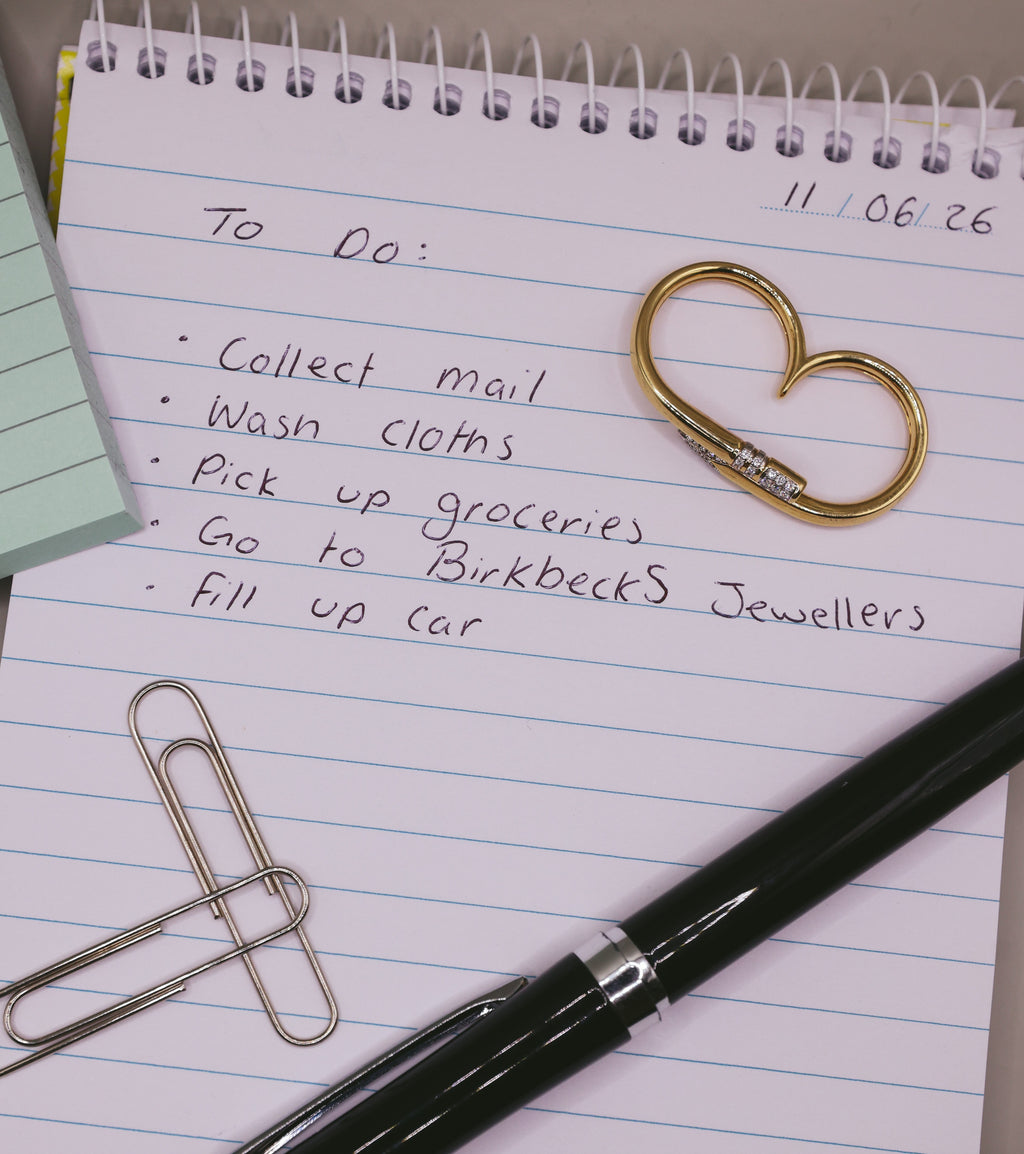 11/06/26
To Do:
• Collect mail
• Wash cloths
• Pick up groceries
• Go to Birkbecks Jewellers
• Fill up car